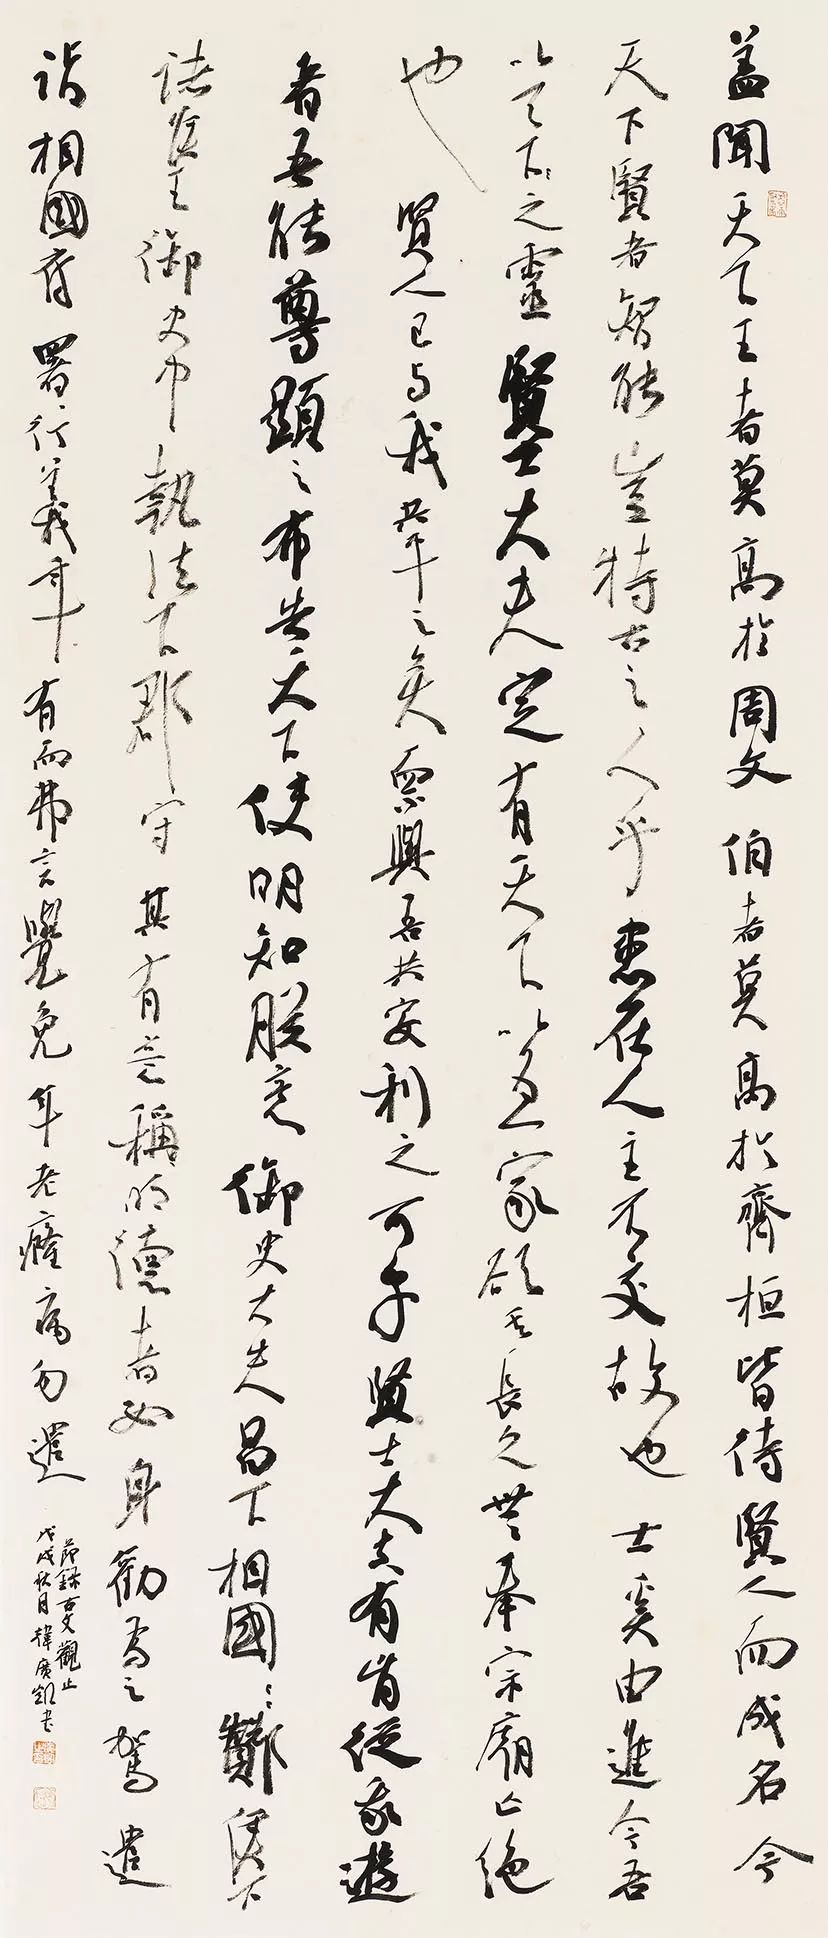 蓋聞天下王者莫高於周文伯者莫高於齊桓皆待賢人而成名今
天下賢者智能豈特古之人乎患在人主不交故也士奚由進今吾
以天下之靈賢士大夫定有天下以為一家欲其長久世世奉宗廟亡絕
也賢人已與我共平之矣而不與吾共安利之可乎賢士大夫有肯從我遊
者吾能尊顯之布告天下使明知朕意御史大夫昌下相國相國酇侯下
諸侯王御史中執法下郡守其有意稱明德者必身勸為之駕遣
詣相國府署行義年有而弗言覺免年老癃病勿遣
節錄古文觀止
戊戌秋月韓廣凱書